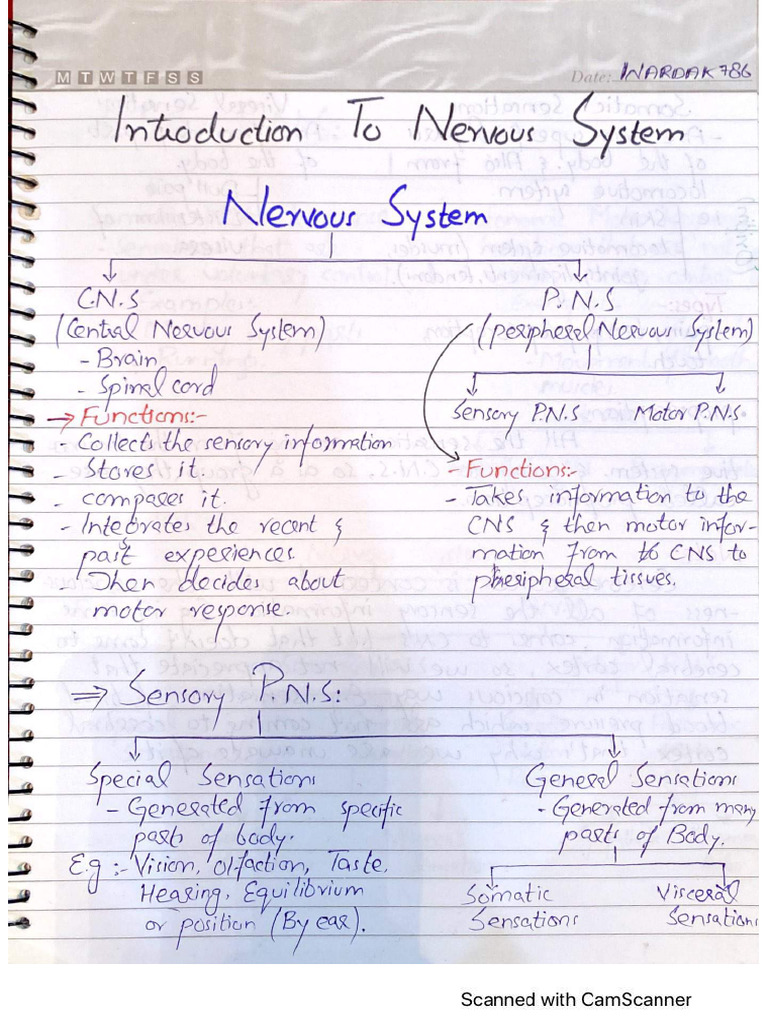 M T W T F S S
Date: WARDAK786
Introduction To Nervous System
Nervous System
C.N.S
(Central Nervous System)
- Brain
- Spinal cord
→ Functions:-
- Collects the sensory information
- Stores it.
- compares it.
- Integrates the recent &
past experiences.
- Then decides about
motor response.
P.N.S
(peripheral Nervous System)
Sensory P.N.S
Motor P.N.S.
- Functions:-
- Takes information to the
CNS & then motor infor-
mation from to CNS to
pheripheral tissues.
⇒ Sensory P.N.S:
Special Sensations
- Generated from specific
parts of body.
E.g :- Vision, Olfaction, Taste,
Hearing, Equilibrium
or position (By ear).
General Sensations
- Generated from many
parts of Body.
Somatic
Sensations
Visceral
Sensations
Scanned with CamScanner